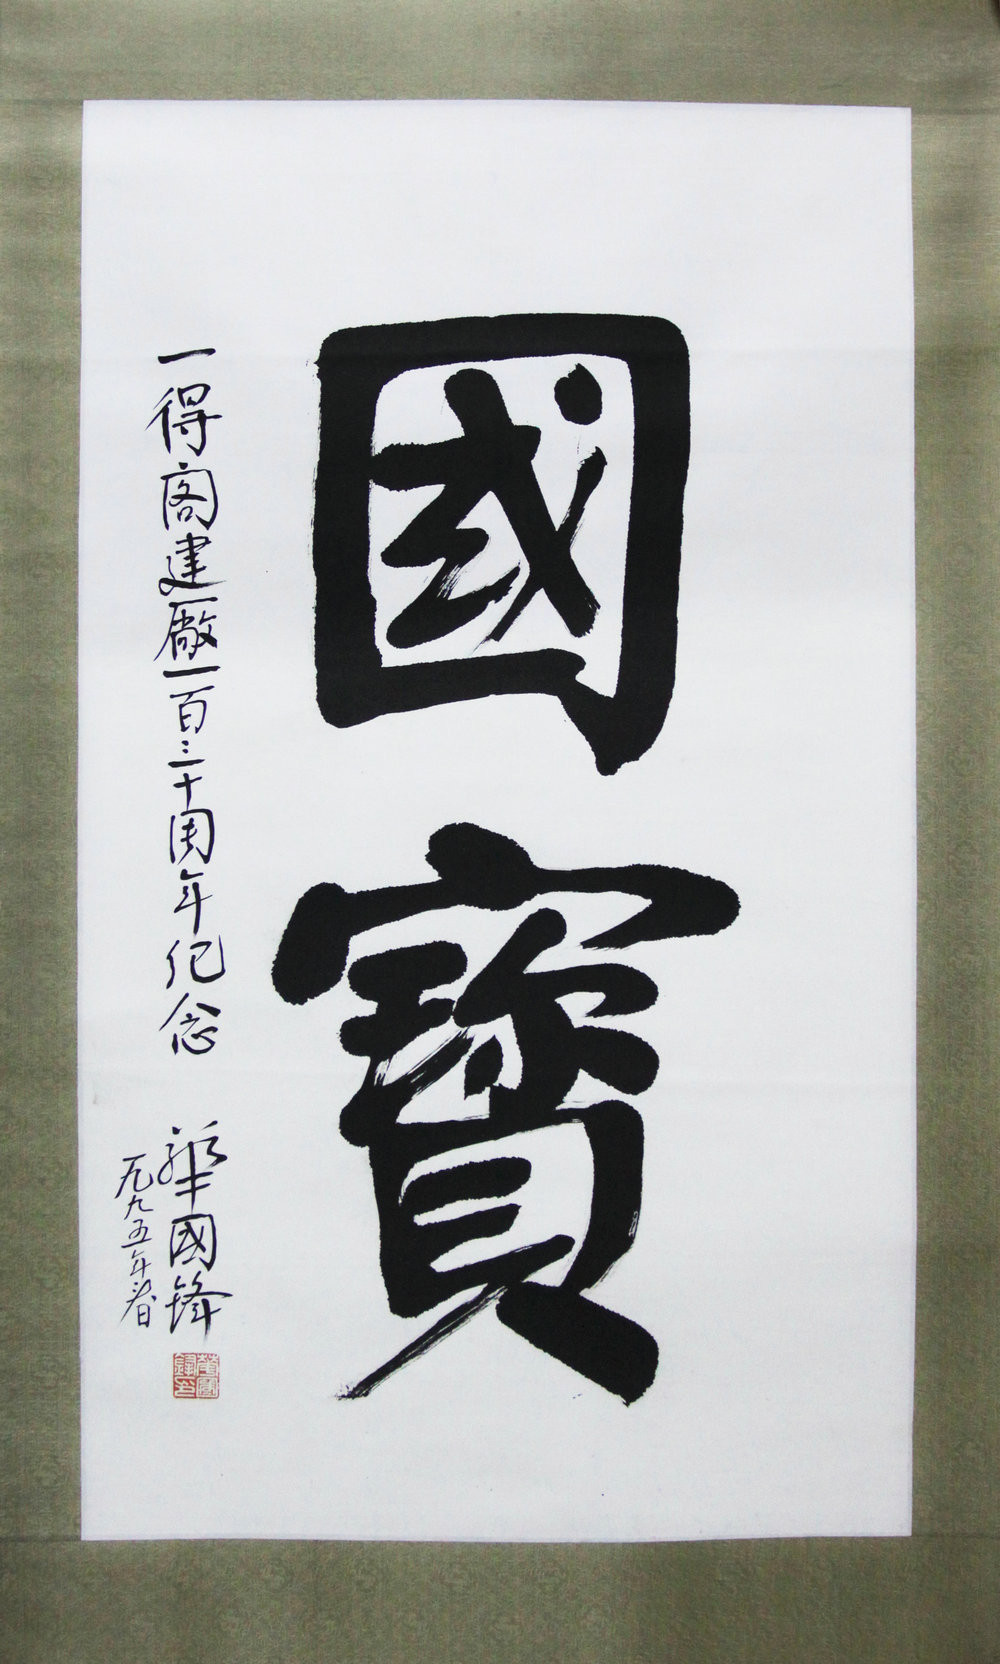 國寶
一得阁建廠一百三十周年纪念
華國鋒
一九九五年春